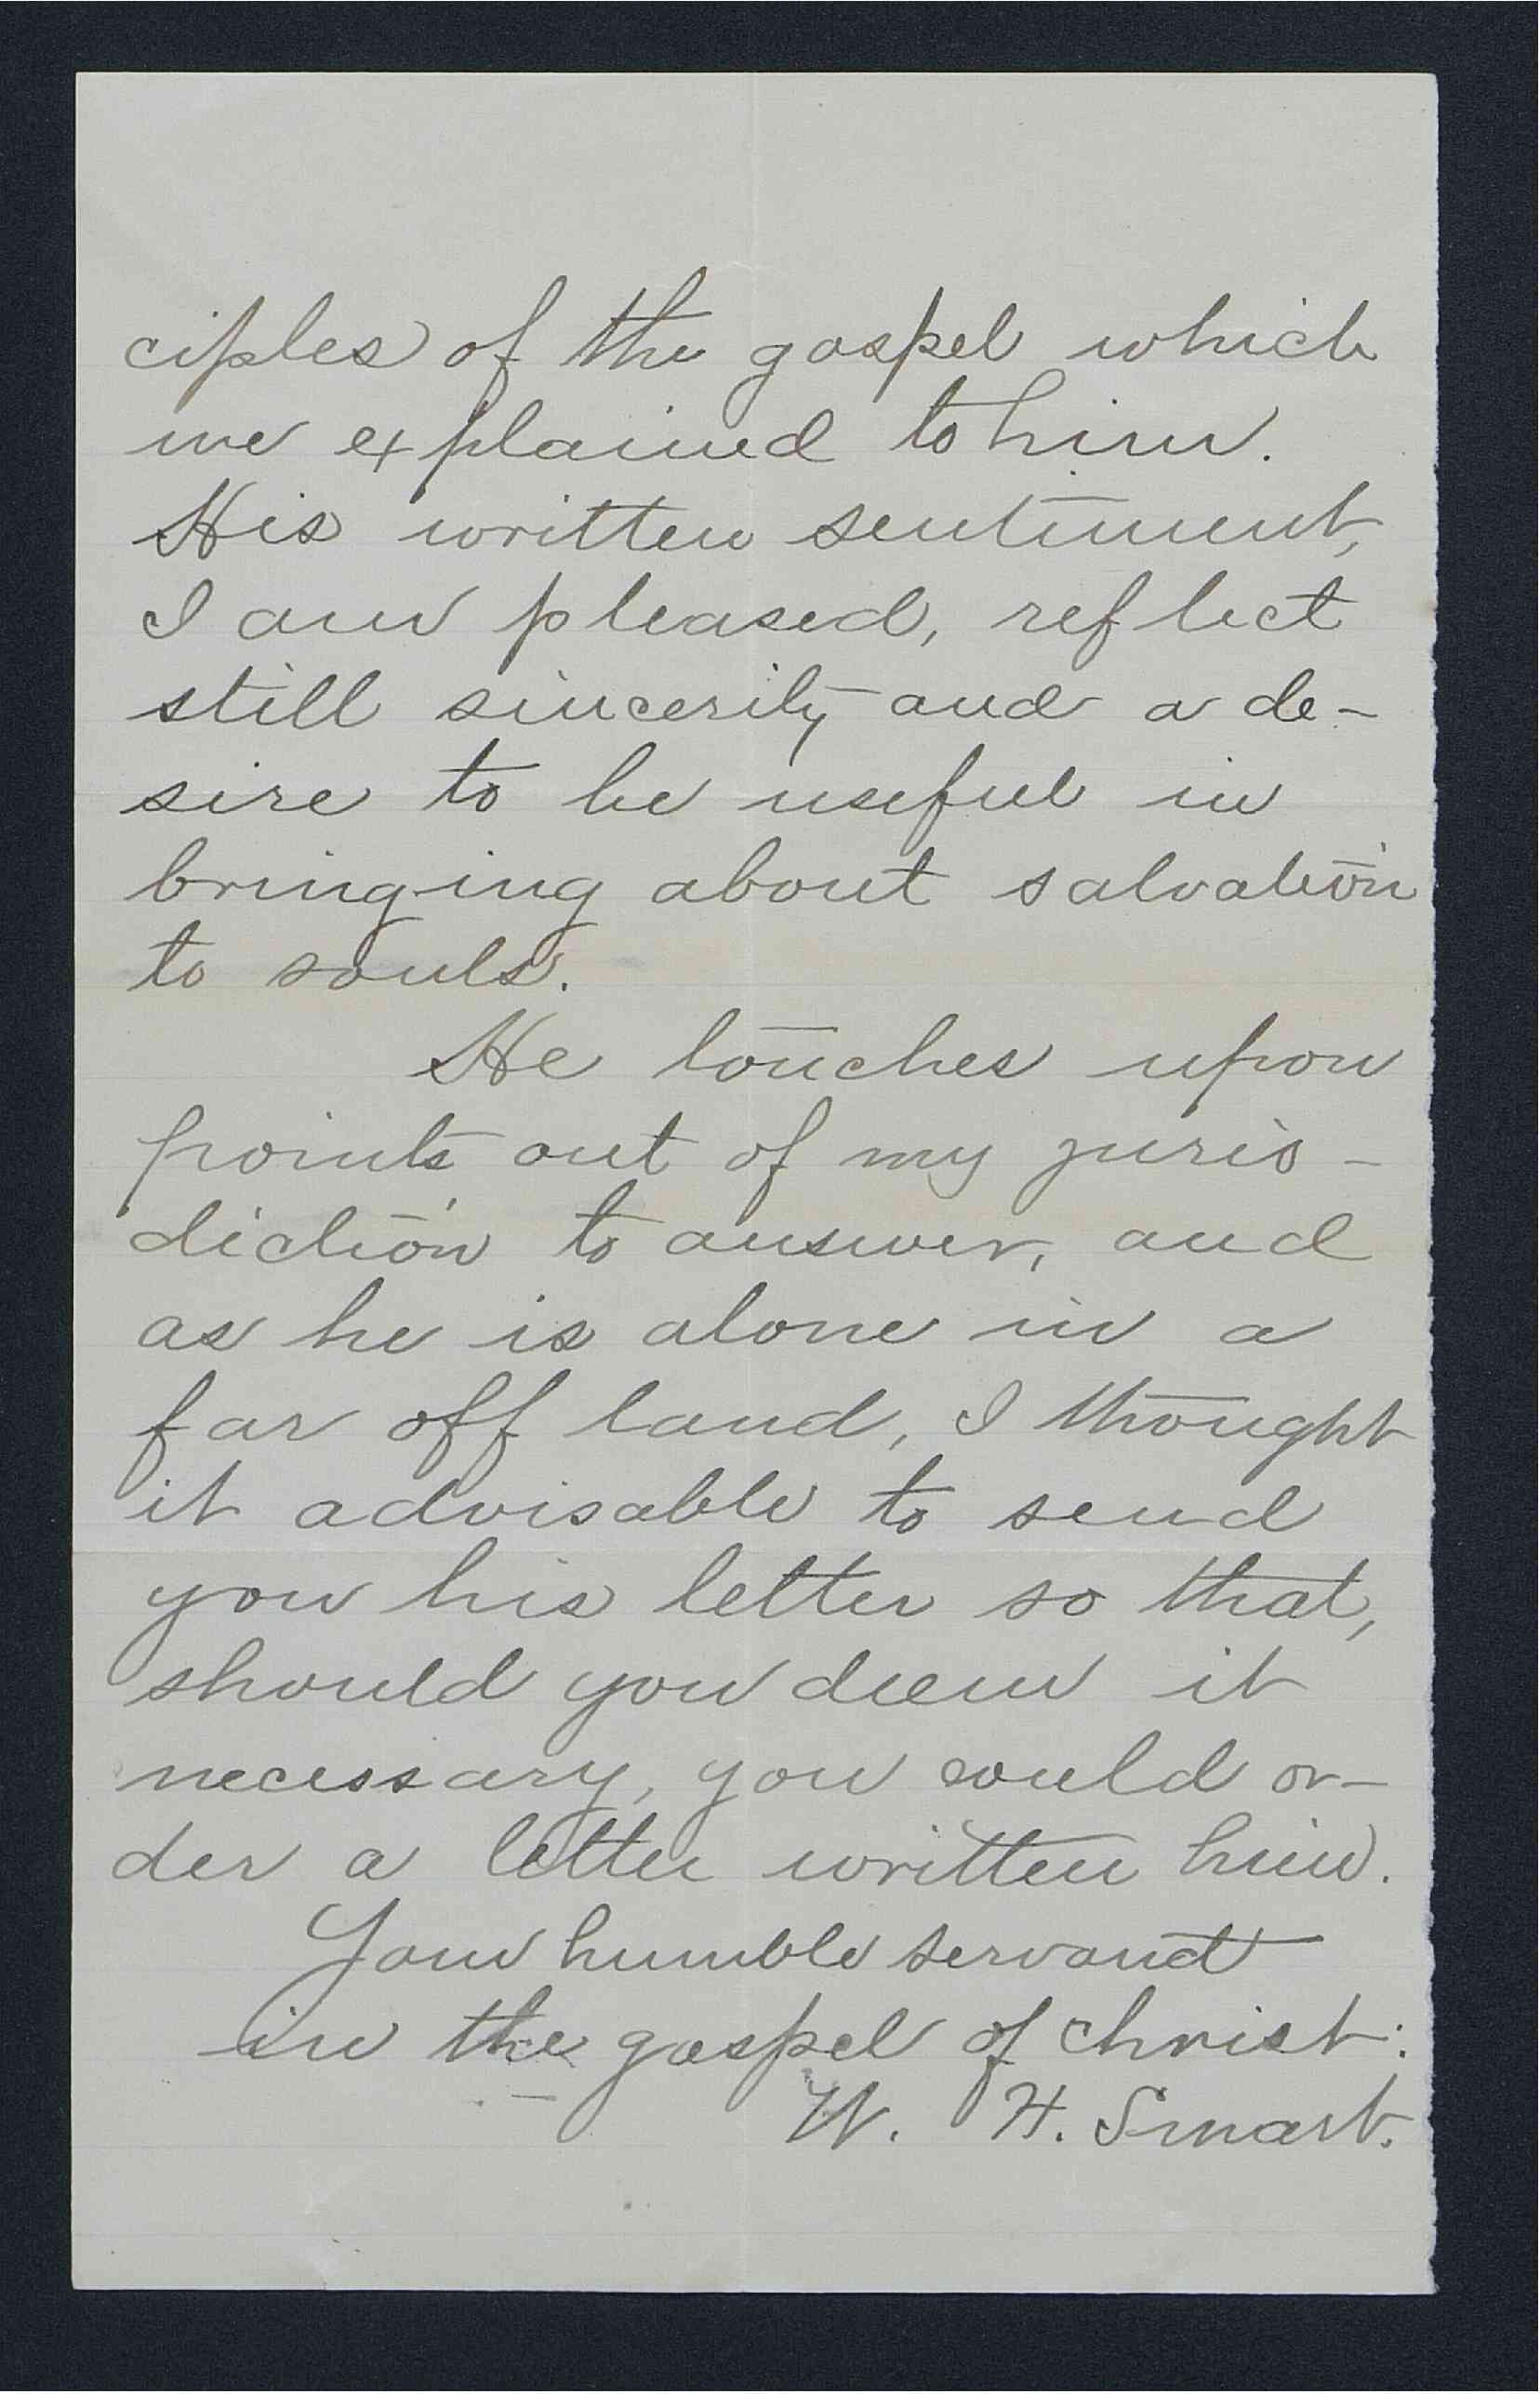 ciples of the gospel which
we explained to him.
His written sentiment,
I am pleased, reflect
still sincerity and a de-
sire to be useful in
bringing about salvation
to souls.
He touches upon
points out of my juris-
diction to answer, and
as he is alone in a
far off land, I thought
it advisable to send
you his letter so that,
should you deem it
necessary, you could or-
der a letter written him.
Your humble servant
in the gospel of Christ:
W. H. Smart.